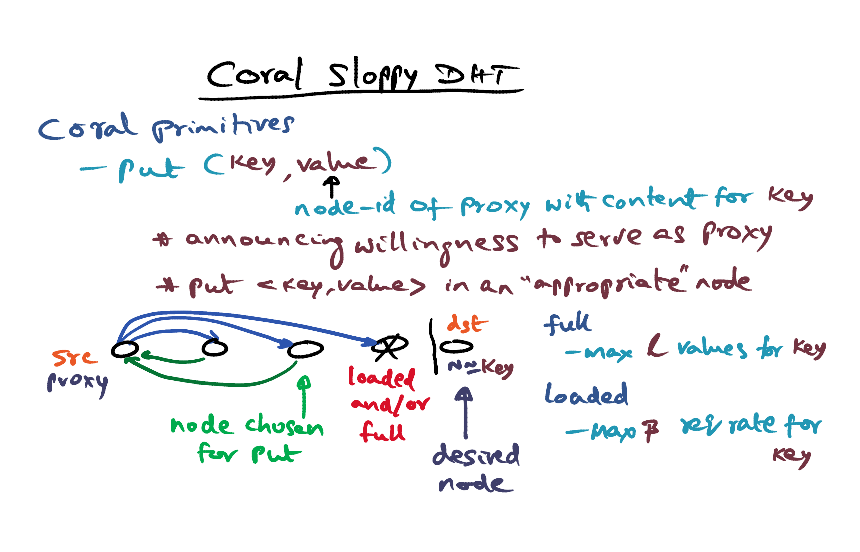 Coral Sloppy DHT
Coral primitives
- put (key, value)
node-id of proxy with content for key
* announcing willingness to serve as proxy
* put <key, value> in an "appropriate" node
src
proxy
node chosen
for put
loaded
and/or
full
dst
N≈key
desired
node
full
- max l values for key
loaded
- max β req rate for
key